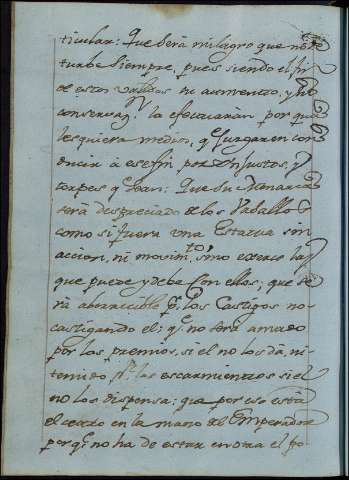 ticular: Que será milagro que no se
turbe siempre, pues siendo el fin
de estos Validos su aumento, y no
conservaz.n la efectuarán por qua
lesquiera medios, q.e juzgaren con
ducir à ese fin por injustos, y
torpes q.e sean: Que su Monarca
será despreciado de los Vasallos
como si fuera una Estatua sin
accion, ni movim.to, sino exerce la
que puede y debe con ellos; que se
rá aborrecible p.r los Castigos no
castigando el; q.e no será amado
por los premios, si el no los dá, ni
temido p.r los escarmientos si el
no los dispensa; que por eso está
el cetro en la mano del Emperador
porq.e no ha de estar en otra el go